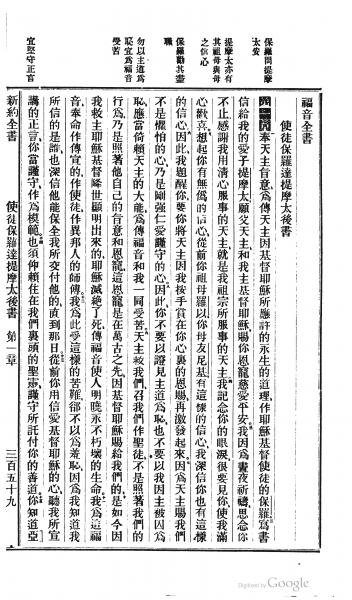 福音全書
使徒保羅達提摩太後書
保羅問提摩太安
提摩太亦有其祖母與母之信心
保羅勸其盡職
勿以主道爲恥宜爲福音受苦
宜堅守正言
第一章奉天主旨意、爲傳天主因基督耶穌所應許的永生的道理、作耶穌基督使徒的保羅、寫書
信給我的愛子提摩太、願父天主和我主基督耶穌賜你恩寵慈愛平安、我因爲晝夜祈禱、思念你
不止、感謝我用清心服事的天主、就是我祖宗所服事的天主、我記念你的眼淚、很要見你、使我滿
心歡喜、想起你有無僞的信心、從前你祖母羅以、你母友尼基、有這樣的信心、我深信你也有這樣
的信心、因此我題醒你、要你將天主因我按手賞在你心裏的恩賜、再激發起來、因爲天主賜我們
不是懼怕的心、乃是剛强仁愛謹守的心、因此你不要以證見主道爲恥、也不要以我因主被囚爲
恥、應當倚賴天主的大能、爲傳福音和我一同受苦、天主救我們、召我們作聖徒、不是照著我們的
行爲、乃是照著他自己的旨意和恩寵、這恩寵是在萬古之先、因基督耶穌賜給我們的、是如今因
我救主耶穌基督降世顯明出來的、耶穌滅絶了死、傳福音使人明曉永不朽壞的生命、我爲這福
音、奉命作傳宣的、作使徒、作異邦人的師傅、我爲此受這樣的苦難、卻不以爲羞恥、因爲我知道我
所信的是誰、也深信他能保全我所交付他的、直到那日、從前你用信愛基督耶穌的心、聽我所宣
講的正言、你當謹守、作爲模範、也須仰賴住在我們裏頭的聖靈、謹守所託付你的善道、你知道亞
新約全書　使徒保羅達提摩太後書　第一章　三百五十九
Digitized by Google